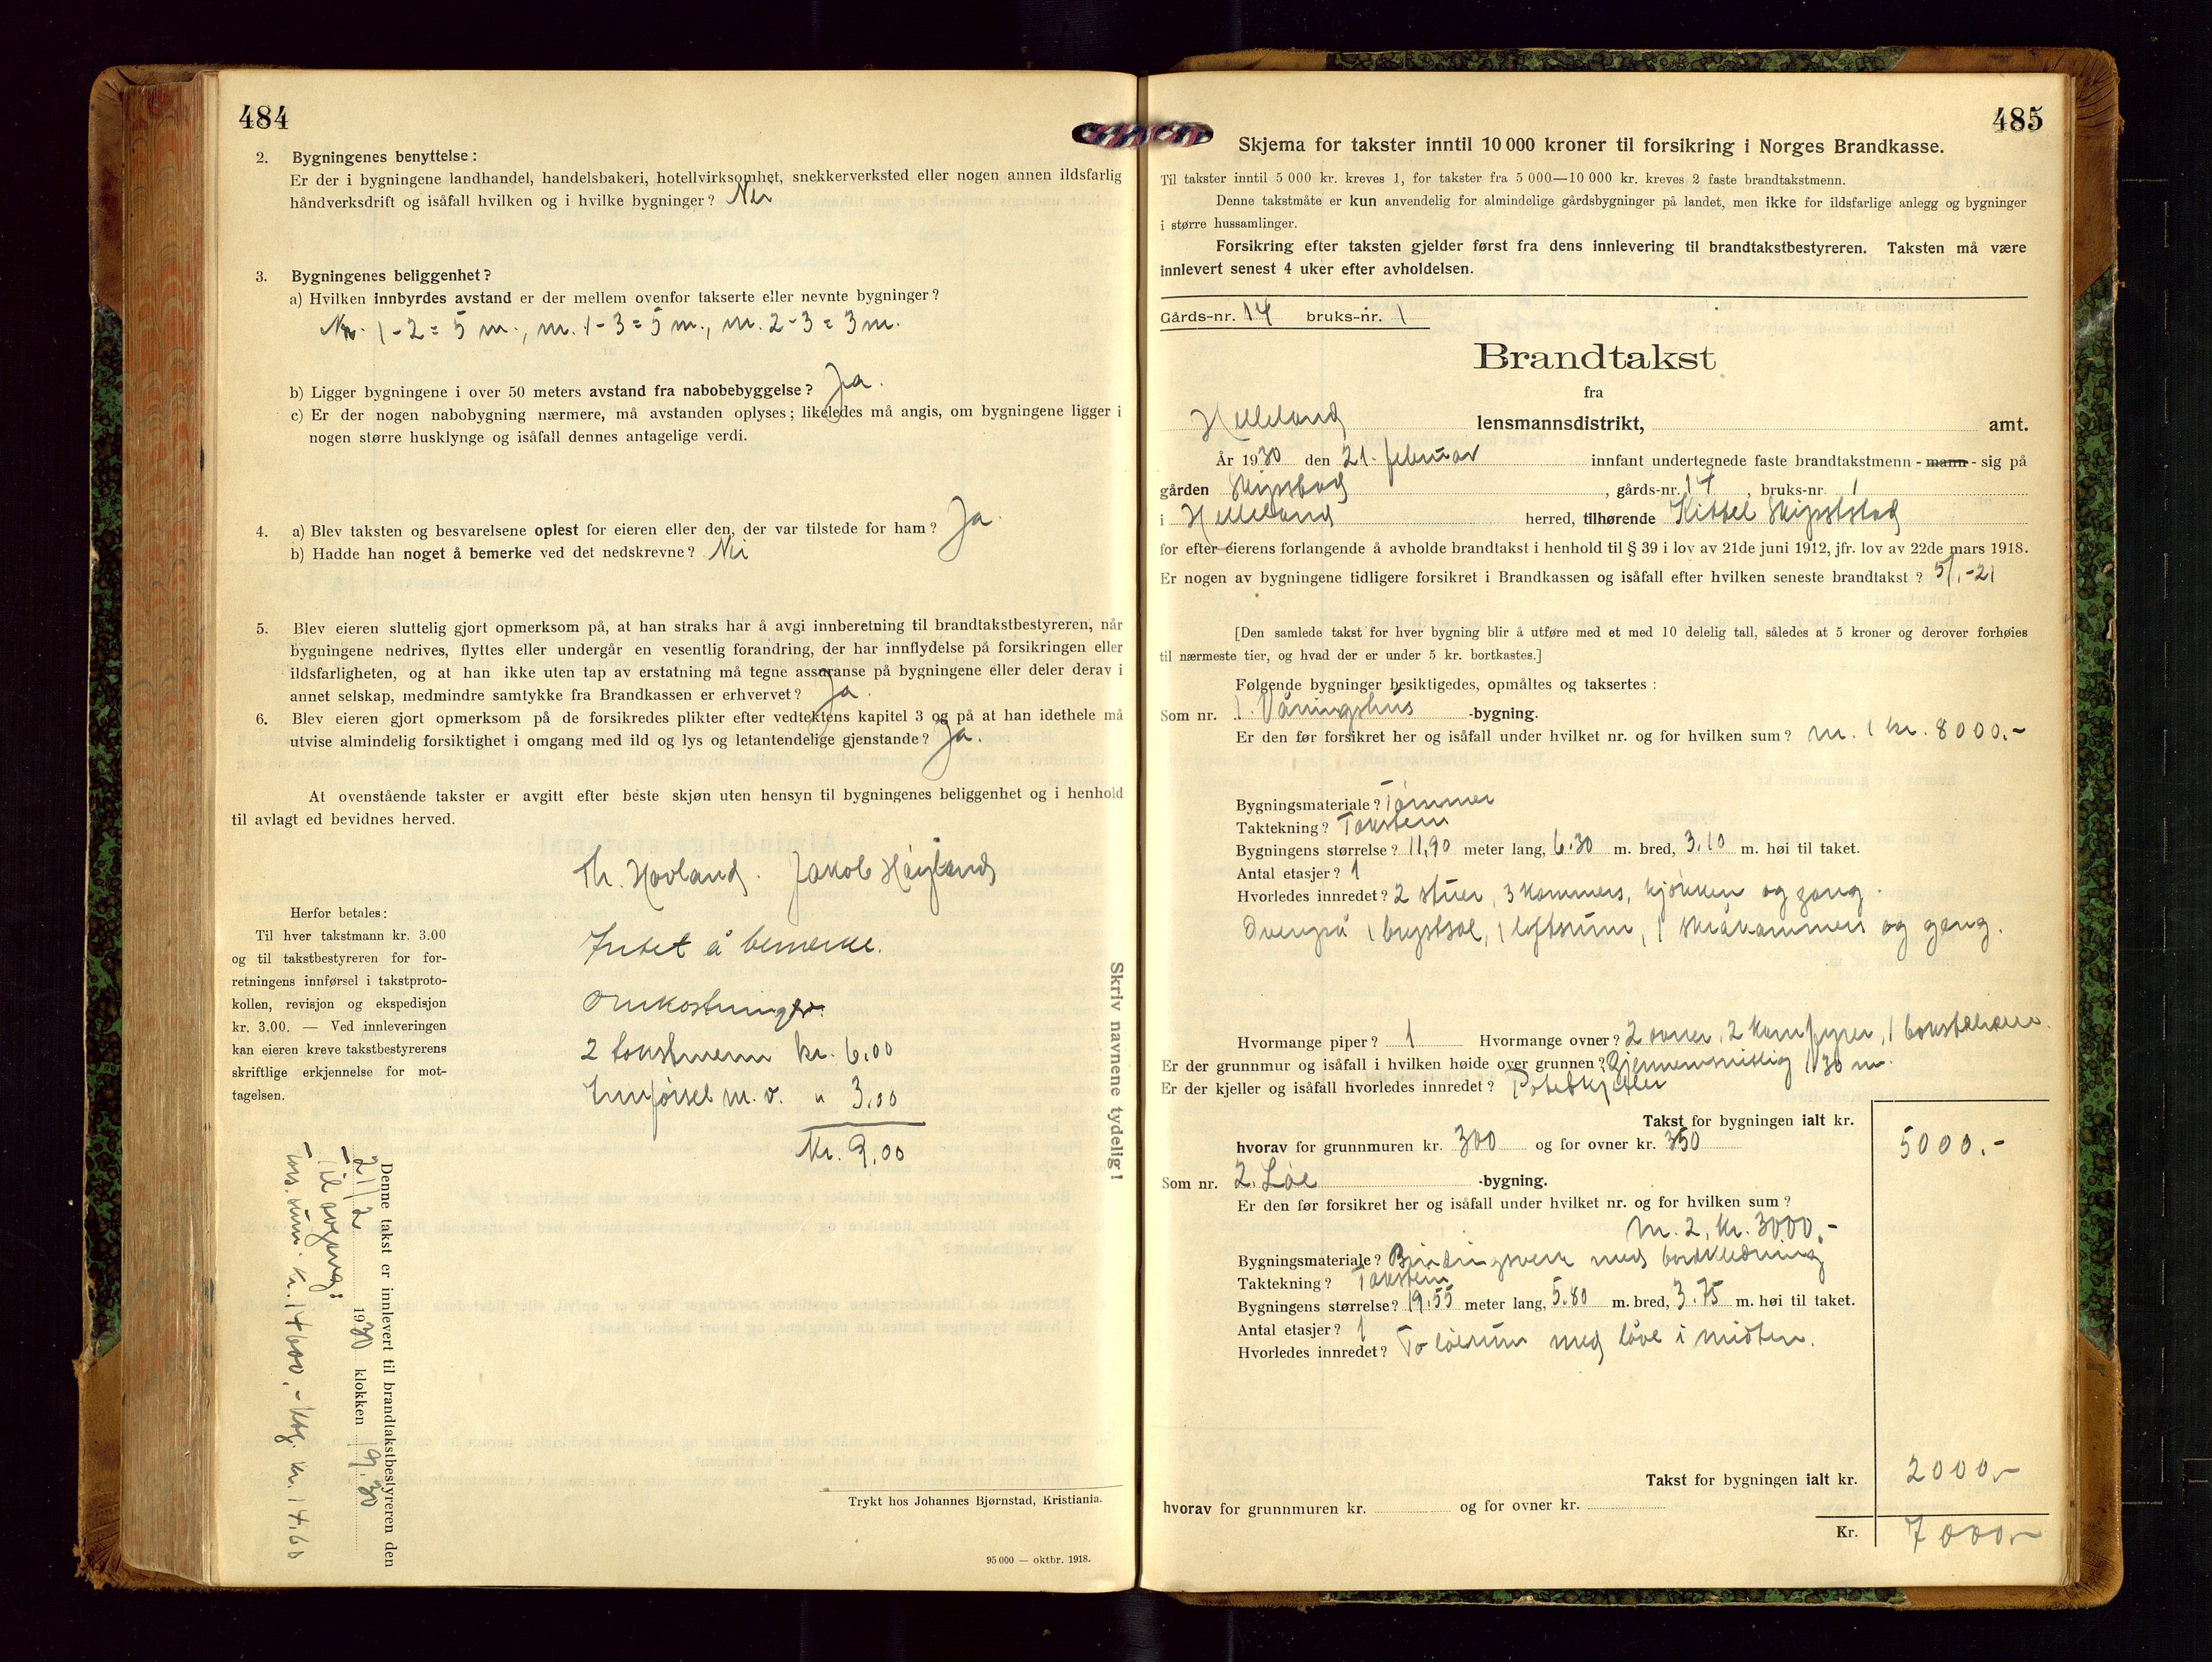 484
2. Bygningenes benyttelse:
Er der i bygningene landhandel, handelsbakeri, hotellvirksomhet, snekkerverksted eller nogen annen ildsfarlig
håndverksdrift og isåfall hvilken og i hvilke bygninger? Nei
3. Bygningenes beliggenhet?
a) Hvilken innbyrdes avstand er der mellem ovenfor takserte eller nevnte bygninger?
Nr. 1-2 = 5 m., nr. 1-3 = 5 m., nr. 2-3 = 3 m.
b) Ligger bygningene i over 50 meters avstand fra nabobebyggelse? Ja.
c) Er der nogen nabobygning nærmere, må avstanden oplyses; likeledes må angis, om bygningene ligger i
nogen større husklynge og isåfall dennes antagelige verdi.
4. a) Blev taksten og besvarelsene oplest for eieren eller den, der var tilstede for ham? Ja.
b) Hadde han noget å bemerke ved det nedskrevne? Nei
5. Blev eieren sluttelig gjort opmerksom på, at han straks har å avgi innberetning til brandtakstbestyreren, når
bygningene nedrives, flyttes eller undergår en vesentlig forandring, der har innflydelse på forsikringen eller
ildsfarligheten, og at han ikke uten tap av erstatning må tegne assuranse på bygningene eller deler derav i
annet selskap, medmindre samtykke fra Brandkassen er erhvervet? Ja.
6. Blev eieren gjort opmerksom på de forsikredes plikter efter vedtektens kapitel 3 og på at han idethele må
utvise almindelig forsiktighet i omgang med ild og lys og letantendelige gjenstande? Ja.
At ovenstående takster er avgitt efter beste skjøn uten hensyn til bygningenes beliggenhet og i henhold
til avlagt ed bevidnes herved.
Th. Hovland. Jakob Høyland
Herfor betales:
Til hver takstmann kr. 3.00
og til takstbestyreren for for-
retningens innførsel i takstproto-
kollen, revisjon og ekspedisjon
kr. 3.00. — Ved innleveringen
kan eieren kreve takstbestyrerens
skriftlige erkjennelse for mot-
tagelsen.
Intet å bemerke.
Omkostninger.
2 takstmenn kr. 6.00
Innførsel m. v. " 3.00
Kr. 9.00
Skriv navnene tydelig!
Denne takst er innlevert til brandtakstbestyreren den
21/2 1930 klokken 19.30
Til avgang:
Ass. sum. kr. 14600,- kr. 14.60
Trykt hos Johannes Bjørnstad, Kristiania.
95 000 — oktbr. 1918.
485
Skjema for takster inntil 10 000 kroner til forsikring i Norges Brandkasse.
Til takster inntil 5 000 kr. kreves 1, for takster fra 5 000—10 000 kr. kreves 2 faste brandtakstmenn.
Denne takstmåte er kun anvendelig for almindelige gårdsbygninger på landet, men ikke for ildsfarlige anlegg og bygninger
i større hussamlinger.
Forsikring efter taksten gjelder først fra dens innlevering til brandtakstbestyreren. Taksten må være
innlevert senest 4 uker efter avholdelsen.
Gårds-nr. 14 bruks-nr. 1
Brandtakst
fra
Helleland lensmannsdistrikt, amt.
År 1930 den 21. februar innfant undertegnede faste brandtakstmenn - mann - sig på
gården Skipstad, gårds-nr. 14, bruks-nr. 1
i Helleland herred, tilhørende Kittel Skipstad
for efter eierens forlangende å avholde brandtakst i henhold til § 39 i lov av 21de juni 1912, jfr. lov av 22de mars 1918.
Er nogen av bygningene tidligere forsikret i Brandkassen og isåfall efter hvilken seneste brandtakst? 5/1-21
[Den samlede takst for hver bygning blir å utføre med et med 10 delelig tall, således at 5 kroner og derover forhøies
til nærmeste tier, og hvad der er under 5 kr. bortkastes.]
Følgende bygninger besiktigedes, opmåltes og taksertes:
Som nr. 1. Våningshus -bygning.
Er den før forsikret her og isåfall under hvilket nr. og for hvilken sum? nr. 1 kr. 8000.-
Bygningsmateriale? Tømmer
Taktekning? Takstein
Bygningens størrelse? 11,90 meter lang, 6.30 m. bred, 3.10 m. høi til taket.
Antal etasjer? 1
Hvorledes innredet? 2 stuer, 3 kammers, kjøkken og gang.
Ovenpå 1 brystsal, 1 loftsrum, 1 skråkammers og gang.
Hvormange piper? 1 Hvormange ovner? 2 ovner, 2 komfyrer, 1
Er der grunnmur og isåfall i hvilken høide over grunnen? Gjennemsnittlig 1.30 m.
Er der kjeller og isåfall hvorledes innredet? Potetkjeller
Takst for bygningen ialt kr. 5000.-
hvorav for grunnmuren kr. 300 og for ovner kr. 350
Som nr. 2. Løe -bygning.
Er den før forsikret her og isåfall under hvilket nr. og for hvilken sum?
nr. 2, kr. 3000.-
Bygningsmateriale? Bindingsverk med bordklædning
Taktekning? Takstein
Bygningens størrelse? 19.55 meter lang, 5.80 m. bred, 3.75 m. høi til taket.
Antal etasjer? 1
Hvorledes innredet? To løerum med låve i midten.
Takst for bygningen ialt kr. 2000.-
hvorav for grunnmuren kr. og for ovner kr.
Kr. 7000.-